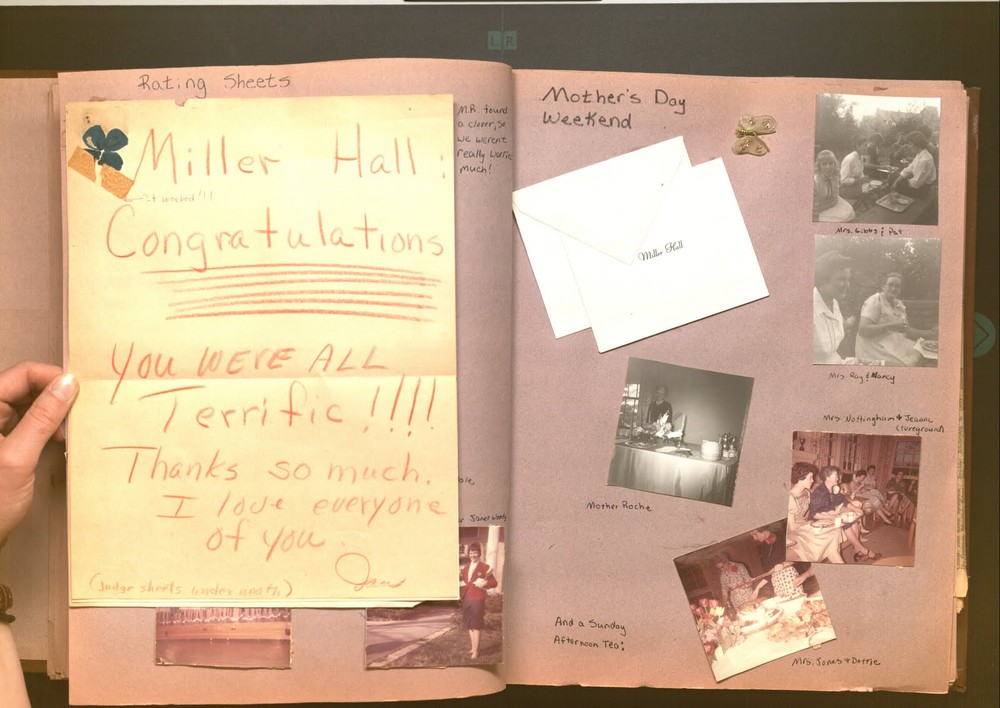 L R
Rating Sheets
M.R. found
a clover, so
we weren't
really
much!
Miller Hall:
It worked!!!
Congratulations
YOU WERE ALL
Terrific!!!!
Thanks so much.
I love everyone
of you.
Jan
(Judge sheets under neath)
Janet
Mother's Day
Weekend
Miller Hall
Mrs. Gibbs & Pat
Mrs. Ray & Nancy
Mrs. Nottingham & Jeanne
(foreground)
Mother Roche
And a Sunday
Afternoon Tea:
Mrs. Jones & Dottie